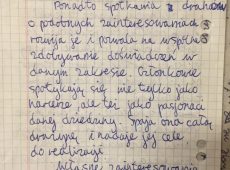 Ponadto spotkania z druhami
o podobnych zainteresowaniach
rozwija je i pozwala na wspólne
zdobywanie doświadczeń w
danym zakresie. Członkowie
spotykają się nie tylko jako
harcerze, ale też jako pasjonaci
danej dziedziny. Spaja ona całą
drużynę i nadaje jej cele
do realizacji.
Własne zainteresowania